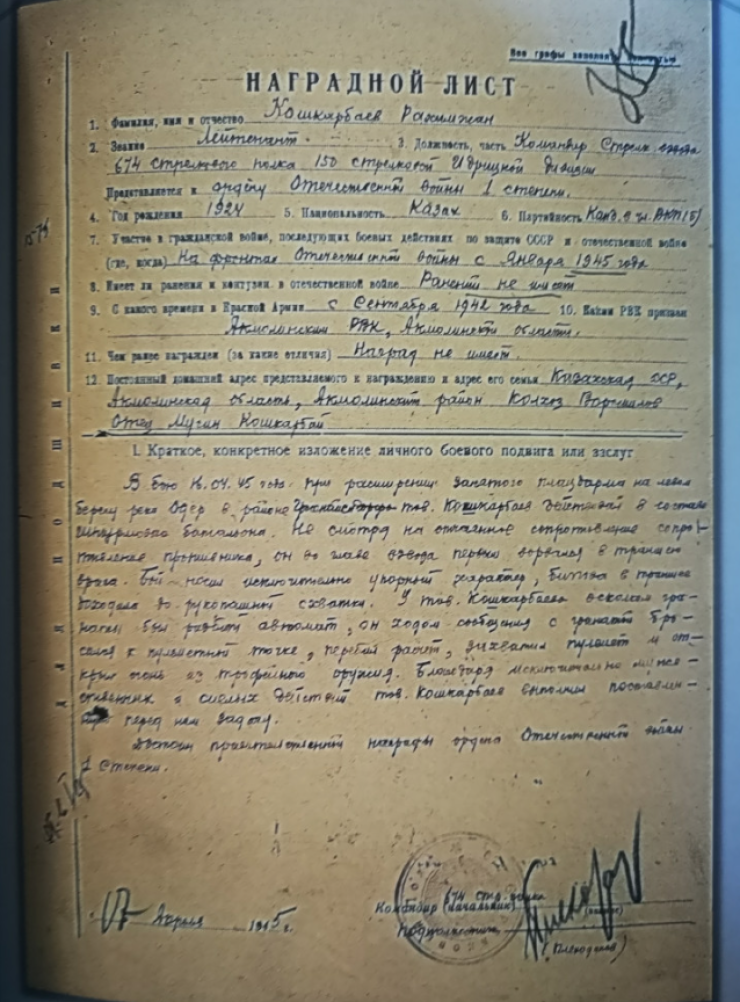 Все графы заполнять полностью
НАГРАДНОЙ ЛИСТ
1. Фамилия, имя и отчество Кошкарбаев Рахимжан
2. Звание Лейтенант. 3. Должность, часть Командир Стрелк. взвода
674 стрелкового полка 150 стрелковой Идрицкой дивизии
Представляется к ордену Отечественной войны 1 степени.
4. Год рождения 1924 5. Национальность Казах 6. Партийность Канд. в чл. ВКП(б)
7. Участие в гражданской войне, последующих боевых действиях по защите СССР и отечественной войне
(где, когда) На фронтах Отечественной войны с Января 1945 года
8. Имеет ли ранения и контузии в отечественной войне Ранений не имеет
9. С какого времени в Красной Армии с Сентября 1942 года 10. Каким РВК призван
Акмолинским РВК, Акмолинской области.
11. Чем ранее награжден (за какие отличия) Наград не имеет.
12. Постоянный домашний адрес представляемого к награждению и адрес его семьи Казахская ССР,
Акмолинская область, Акмолинский район Колхоз Ворошилов
Отец Кошкарбай
1. Краткое, конкретное изложение личного боевого подвига или заслуг
В бою 16.04.45 года при расширении занятого плацдарма на левом
берегу реки Одер в районе тов. Кошкарбаев действовал в составе
Штурмового батальона. Не смотря на отчаянное сопротивление сопро-
тивление противника, он во главе взвода первым ворвался в траншею
врага. Бой носил исключительно упорный характер, битва в траншее
доходила до рукопашной схватки. У тов. Кошкарбаева осколком гра-
наты был разбит автомат, он ходом сообщения с гранатой бро-
сился к пулеметной точке, перебил расчет, захватил пулемет и от-
крыл огонь из трофейного оружия. Благодаря исключительно муже-
ственных и смелых действий тов. Кошкарбаев выполнил поставлен-
перед ним задачу.
Достоин правительственной награды ордена Отечественной войны
1 Степени.
ДЛЯ ПОДШИВКИ
17 Апреля 1945 г.
Командир (начальник) 674 стр. полка
Подполковник